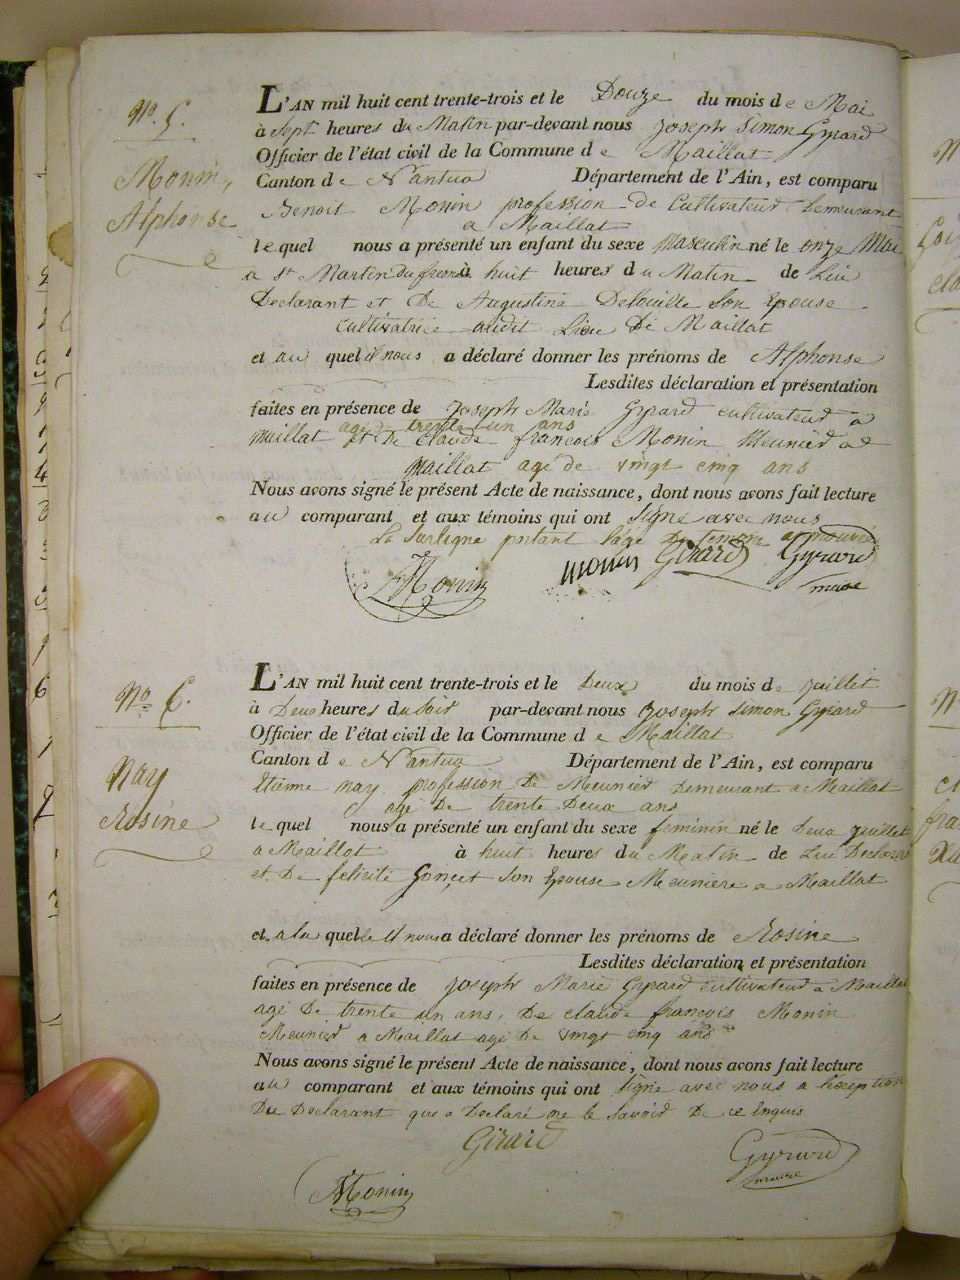 No. 5.
Monin,
Alphonse
L'AN mil huit cent trente-trois et le Douze du mois de Mai
à Sept heures du Matin par-devant nous Joseph Simon Gyrard
Officier de l'état civil de la Commune de Maillat
Canton de Nantua Département de l'Ain, est comparu
Benoit Monin profession de Cultivateur Demeurant
a Maillat
lequel nous a présenté un enfant du sexe Masculin né le onze Mai
a St Martin du fresne à huit heures du Matin de Lui
Declarant et De Augustine Delouille Son Epouse
Cultivatrice audit Lieu De Maillat
et au quel il nous a déclaré donner les prénoms de Alphonse
Lesdites déclaration et présentation
faites en présence de Joseph Marie Gyrard cultivateur à
agé de trente un ans
Maillat et De Claude françois Monin Meunier a
Maillat agé de vingt cinq ans
Nous avons signé le présent Acte de naissance, dont nous avons fait lecture
au comparant et aux témoins qui ont signe avec nous
La surligne portant l'age du temoin approuvé
Monin monin Girard Gyrard
maire
No. 6.
Nay
Rosine
L'AN mil huit cent trente-trois et le Deux du mois de Juillet
à Deux heures du soir par-devant nous Joseph Simon Gyrard
Officier de l'état civil de la Commune de Maillat
Canton de Nantua Département de l'Ain, est comparu
Etienne nay profession De Meunier Demeurant a Maillat
agé De trente Deux ans
lequel nous a présenté un enfant du sexe feminin né le Deux Juillet
a Maillat à huit heures du Matin de Lui Declarant
et De felicité Gonçet Son Epouse Meuniere a Maillat
et a la quelle Il nous a déclaré donner les prénoms de Rosine
Lesdites déclaration et présentation
faites en présence de Joseph Marie Gyrard Cultivateur a Maillat
agé De trente un ans, De Claude françois Monin
Meunier a Maillat agé De vingt cinq ans
Nous avons signé le présent Acte de naissance, dont nous avons fait lecture
au comparant et aux témoins qui ont signe avec nous a l'exception
Du Declarant qui a Declaré ne le savoir De ce Enquis
Girard Gyrard
maire
Monin